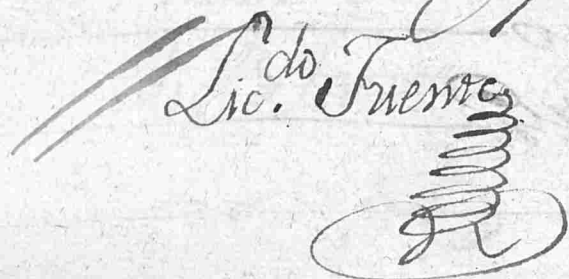 Lic.do Fuente